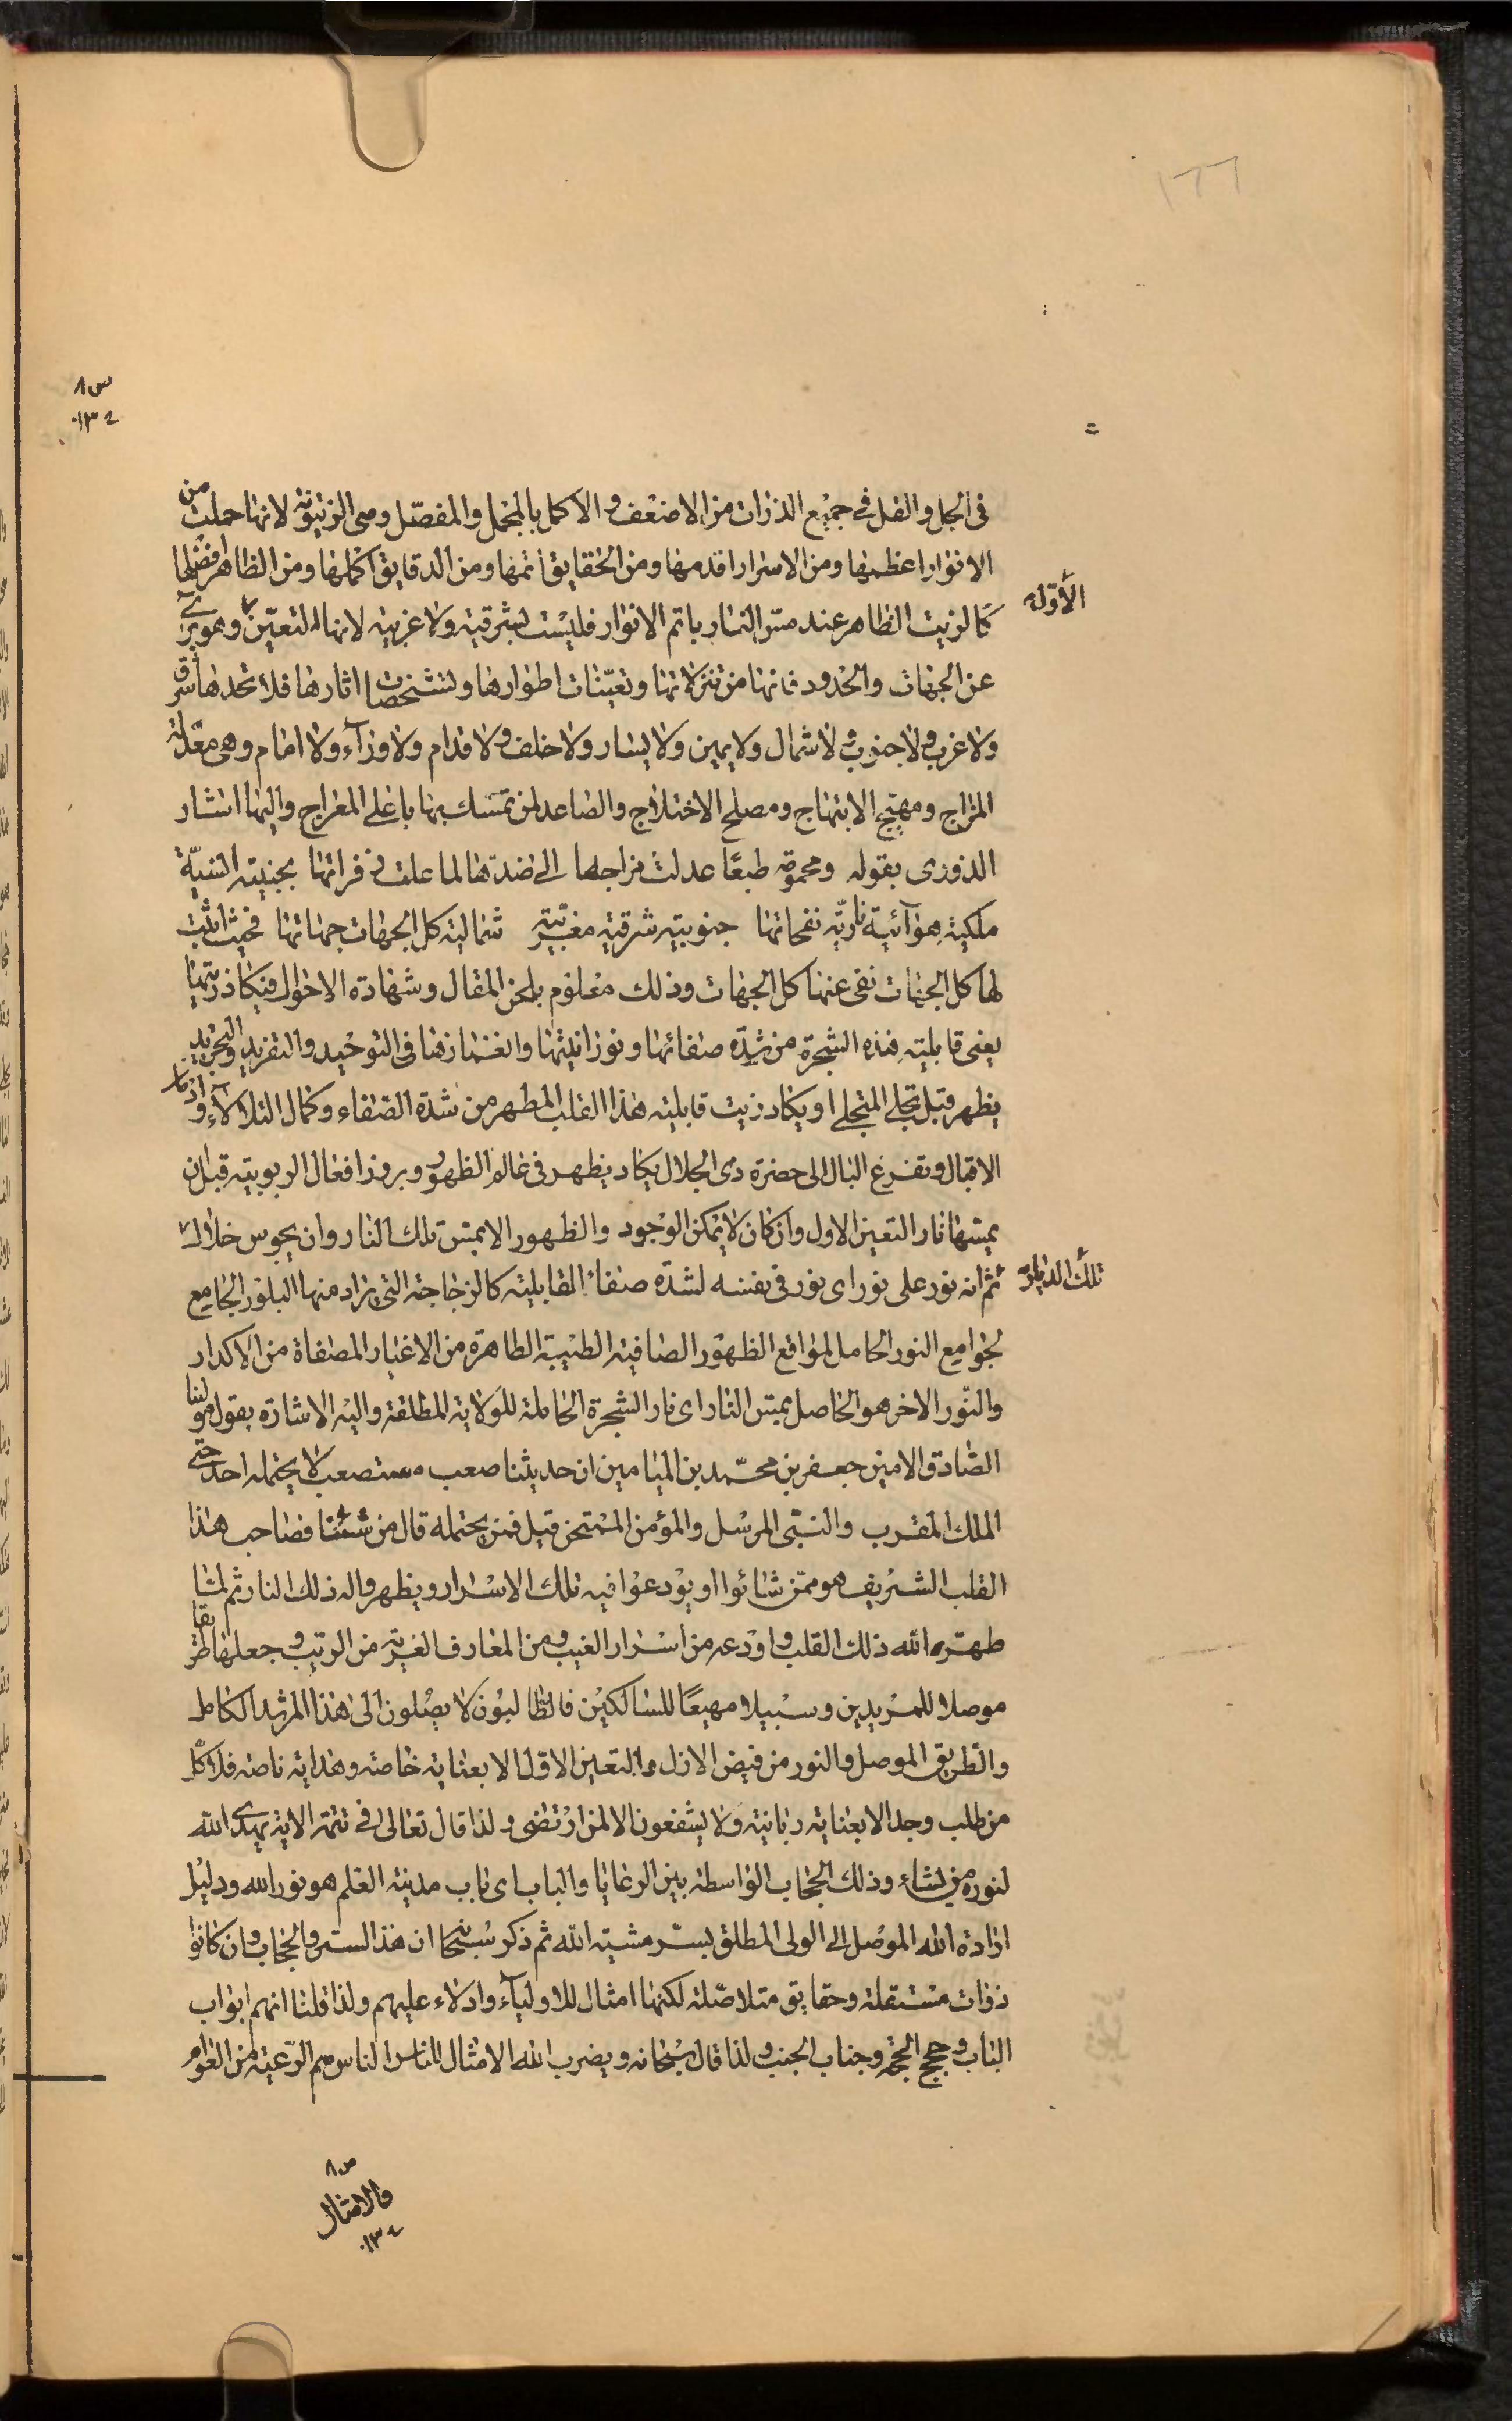 ١٦٦
ص ٨
١٣٤
فى الجل والقل فى جميع الذرات من الاضعف والاكمل بالمجمل والمفصّل وهى الزيتونة لانها حملت من
الانوار اعظمها ومن الاسرار اقدمها ومن الحقايق اتمها ومن الدقايق اكملها ومن الظاهر افضلها
كالزيت الظاهر عند مسّ النار باتم الانوار فليست بشرقية ولا غربية لانها التعيّن الأول وهو برىء
عن الجهات والحدود فانها من تنزلاتها وتعيّنات اطوارها وتشخصات اثارها فلا تحدها شرق
ولا غرب ولا جنوب ولا شمال ولا يمين ولا يسار ولا خلف ولا قدام ولا وراء ولا امام وهى معدّلة
المزاج ومهيّج الابتهاج ومصلح الاختلاج والصاعد لمن تمسك بها باعلى المعراج واليها اشار
الذورى بقوله ومحموته طبعًا عدلت مزاجها الى ضدها لما علت فى قراتها بجنيته انسيّة
ملكية هوآئية ناريّه نفحاتها جنوبية شرقية مغربية شمالية كل الجهات جهاتها فحيث اثبت
لها كل الجهات نفى عنها كل الجهات وذلك معلوم بلحن المقال وشهادة الاحوال فيكاد زيتها
يعنى قابلية هذه الشجرة من شدّة صفائها ونورانيتها وانغمازها فى التوحيد والتفريد والتجريد
يظهر قبل تجلى المتجلى او يكاد زيت قابلية هذا القلب المطهر من شدّة الصفاء وكمال التلألأء و
الاقبال وتفرغ البال الى حضرة ذى الجلال يكاد يظهر فى عالم الظهور وبروز افعال الربوبية قبل ان
يمسّها نار التعين الاول وان كان لا يمكن الوجود والظهور الا بمسّ تلك النار وان يجوس خلال
تلك الديار ثم انه نور على نور اى نور فى نفسه لشدّة صفاء القابلية كالزجاجة التى يراد منها البلور الجامع
لجوامع النور الحامل لمواقع الظهور الصافية الطيبة الطاهرة من الاغيار المصفاة من الاكدار
والنّور الاخر هو الحاصل بمسّ النار اى نار الشجرة الحاملة للولاية المطلقة واليه الاشارة بقول مولينا
الصّادق الامين جعفر بن محمّد بن الميامين ان حديثنا صعب مستصعب لا يحتمله احد حتى
الملك المقرب والنبّى المرسل والمؤمن الممتحن قيل فمن يحتمله قال من شئنا فصاحب هذا
القلب الشريف هو ممّن شائوا او يودعوا فيه تلك الاسرار ويظهر واله ذلك النار ثم لمّا
طهّره الله ذلك القلب واودعه من اسرار الغيب ومن المعارف الغريبة من الريب وجعلها طريقا
موصلا للمريدين وسبيلا مهيعًا للسالكين فالطالبون لا يصلون الى هذا المرشد الكامل
والطريق الموصل والنور من فيض الازل والتعين الاوّل الا بعناية خاصة وهداية ناصة فلا كل
من طلب وجد الا بعناية ربانية ولا يشفعون الا لمن ارتضى ولذا قال تعالى فى تتمة الاية يهدى الله
لنوره من يشاء وذلك الحجاب الواسطة بين الرعايا والباب اى باب مدينة العلم هو نور الله ودليل
ارادة الله الموصل الى الولى المطلق بسر مشية الله ثم ذكر سبحانه ان هذا الستر والحجاب وان كانوا
ذوات مستقلة وحقايق متلاصّلة لكنها امثال للاوليآء وادلاء عليهم ولذا قلنا انهم ابواب
الباب وحجج الحجة وجناب الجنب ولذا قال سبحانه ويضرب الله الامثال للناس الناس هم الرّعية من العوام
ص ٨
والامثال
١٣٤